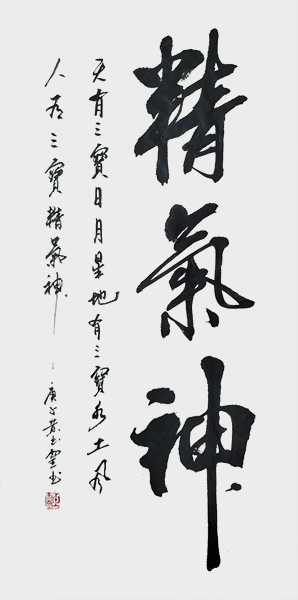 精氣神
天有三寶日月星地有三寶水土风
人有三寶精氣神
庚子黄玉雲书